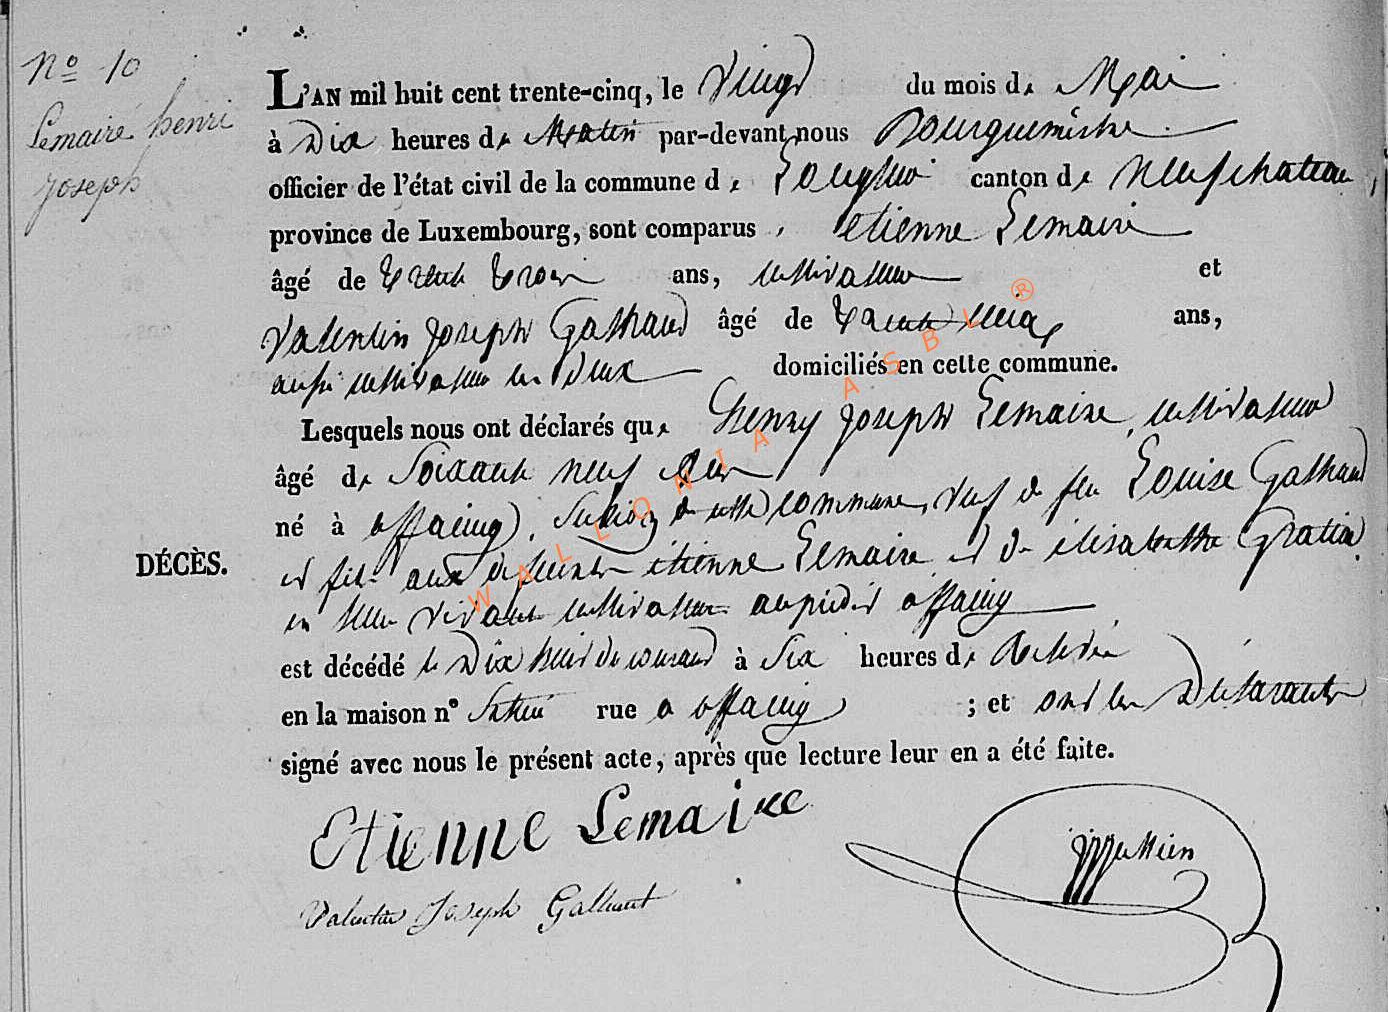 Nº 10
Lemaire henri
joseph
L'AN mil huit cent trente-cinq, le Vingt du mois de Mai
à Dix heures du Matin par-devant nous Bourguemestre
officier de l'état civil de la commune de Longlier canton de Neufchateau,
province de Luxembourg, sont comparus etienne Lemaire
âgé de trente trois ans, cultivateur et
Valentin joseph Galhaud âgé de trente ans,
aussi cultivateur les deux domiciliés en cette commune.
Lesquels nous ont déclarés que henry joseph Lemaire, cultivateur
âgé de Soixante neuf ans
né à offaing, Section de cette commune, veuf de feu Louise Galhaud
DÉCÈS.
et fils aux defunts etienne Lemaire et de elisabette Gratia
en leur vivant cultivateurs au predit offaing
est décédé le Dix huit du courant à Six heures de Relevée
en la maison nº Sept rue a offaing ; et ont les Déclarants
signé avec nous le présent acte, après que lecture leur en a été faite.
Etienne Lemaire
Valentin Joseph Galhaut
WALLONIA ASBL ®